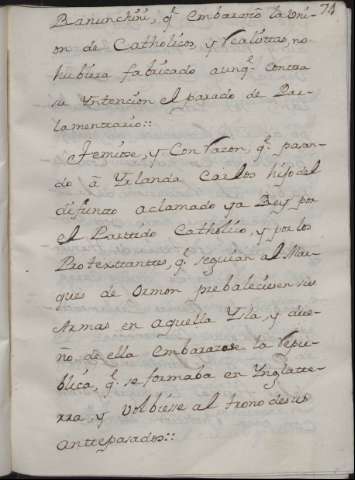 74
Ranunchini, q.e embarazó la Uni-
on de Catholicos, y Realistas, no
hubiera fabricado aunq.e contra
su Yntencion el parado de Par-
lamentario::
Temiose, y con razon, q.e pasan-
do á Yrlanda Carlos hijo del
difunto aclamado ya Rey por
el Partido Catholico, y por los
Protextantes, q.e seguian al Mar-
ques de Ormon prebaleciesen sus
Armas en aquella Ysla, y due-
ño de ella embarazase la Repu-
blica, q.e se formaba en Ynglate-
rra, y volbiese al trono de sus
antepasados::